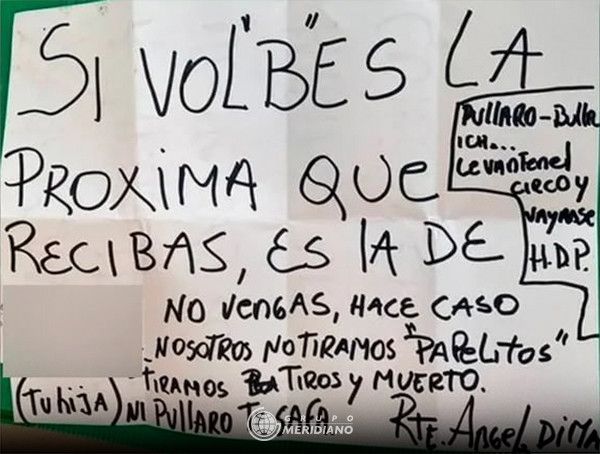 SI VOL"B"ES LA
PROXIMA QUE
RECIBAS, ES LA DE
PULLARO - Bullr
ICH...
LevanTenel
CIRCO Y
VAYANSE
H.D.P.
NO VENGAS, HACE CASO
NOSOTROS NO TIRAMOS "PAPELITOS"
TIRAMOS TIROS Y MUERTO.
(Tu hija) NI PULLARO
RTE. ANGEL DIMA
GRUPO
MERIDIANO